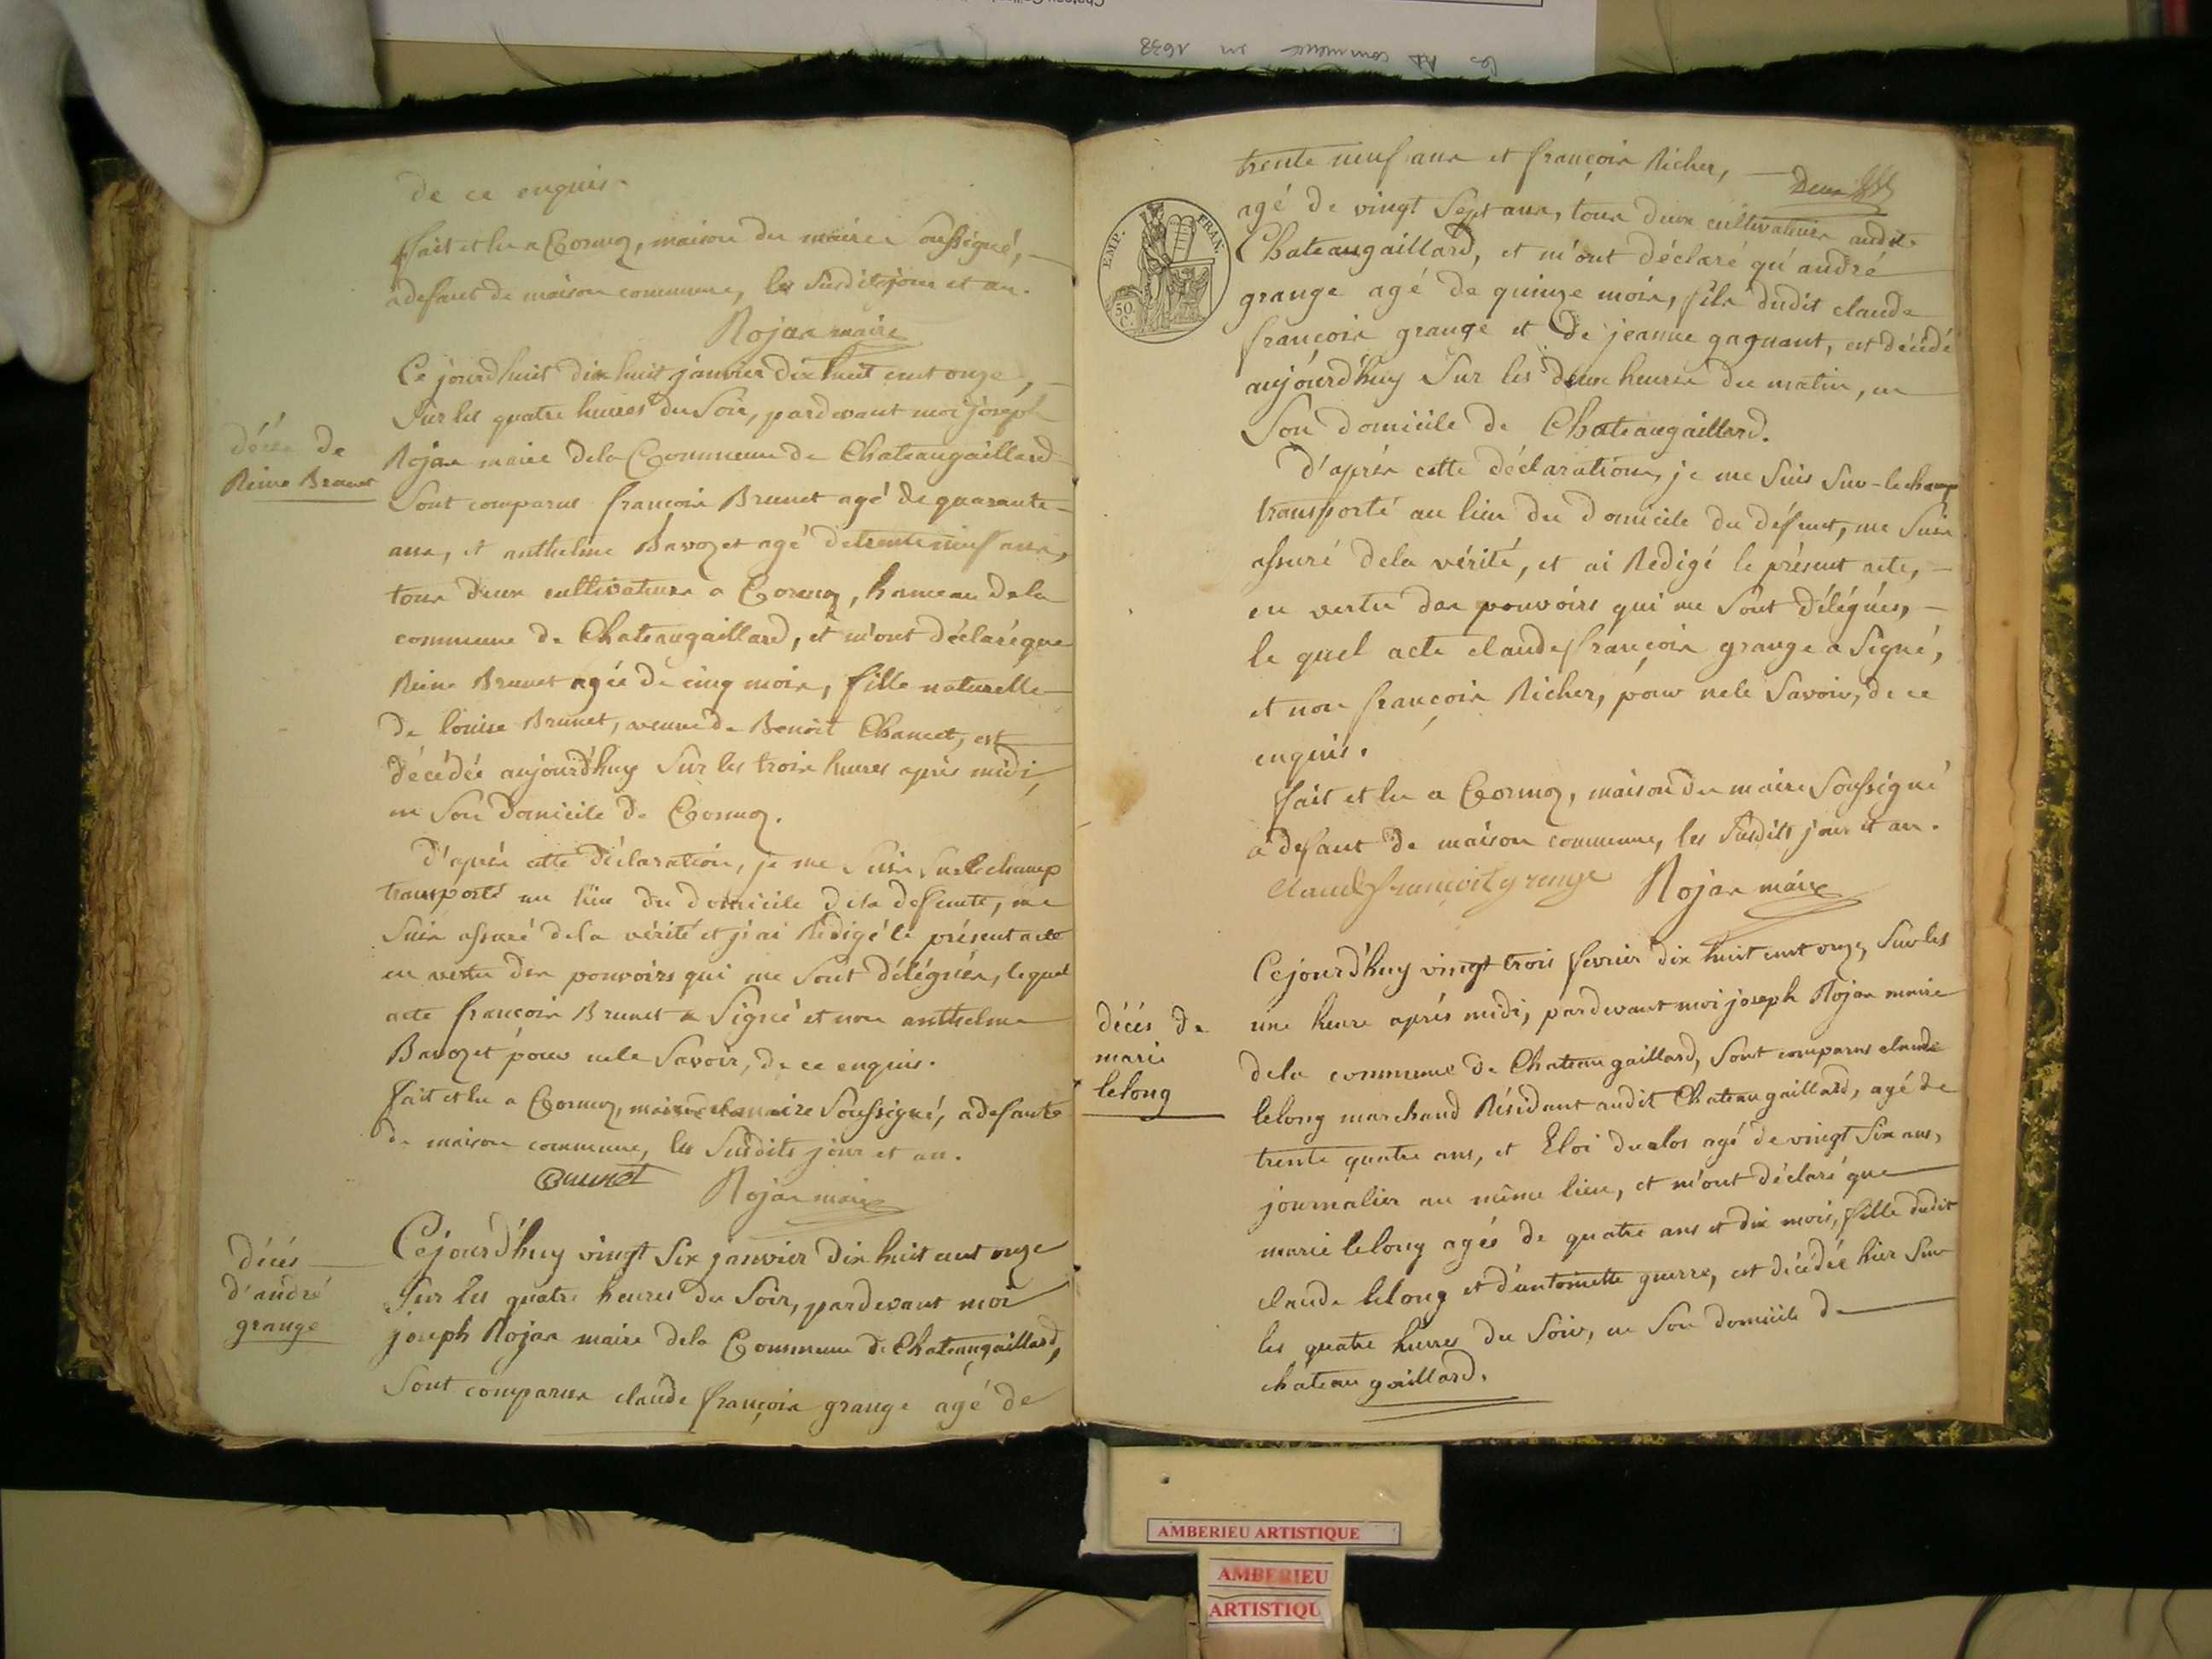 de ce enquis.
fait et lu a Cormoz, maison du maire soussigné,
a defaut de maison commune, les susdits jour et an.
Rojas maire
Ce jourd'huit dix huit janvier dix huit cent onze,
Sur les quatre heures du Soir, pardevant moi joseph
décès de
Reine Brunet
Rojas maire dela Commune de Chateaugaillard
Sont comparus françois Brunet agé de quarante
ans, et anthelme Bavozet agé detrente neuf ans,
tous deux cultivateurs a Cormoz, hameau dela
commune de Chateaugaillard, et m'ont déclaré que
Reine Brunet agée de cinq mois, fille naturelle
de louise Brunet, veuve de Benoit Chancet, est
décédée aujourd'huy Sur les trois heures après midi,
en Son domicile de Cormoz.
d'après cette déclaration, je me Suis Surlechamp
transporté au lieu du domicile dela defunte, me
Suis assuré dela vérité et j'ai Rédigé le présent acte
en vertu des pouvoirs qui me Sont délégués, lequel
acte françois Brunet a Signé et non anthelme
Bavozet pour nele Savoir, de ce enquis.
fait et lu a Cormoz, maison du maire Soussigné, a defaute
de maison commune, les Susdits jour et an.
Brunet Rojas maire
décés
d'andré
grange
Cejourd'huy vingt Six janvier dix huit cent onze
Sur les quatre heures du Soir, pardevant moi
joseph Rojas maire dela Commune de Chateaugaillard,
Sont comparus claude françois grange agé de
EMP. FRAN.
50 C.
trente neuf ans et françois Richer, Deux
agé de vingt Sept ans, tous deux cultivateurs audit
Chateaugaillard, et m'ont déclaré qu'andré
grange agé de quinze mois, fils dudit claude
françois grange et de jeanne gagnant, est décédé
aujourd'huy Sur les deux heures du matin, en
Son domicile de Chateaugaillard.
d'après cette déclaration, je me Suis Sur-lechamp
transporté au lieu du domicile du défunt, me Suis
assuré dela vérité, et ai Redigé le présent acte,
en vertu des pouvoirs qui me Sont délégués,
le quel acte claude françois grange a Signé,
et non françois Richer, pour nele Savoir, de ce
enquis.
fait et lu a Cormoz, maison du maire Soussigné
a defaut de maison commune, les Susdits jour et an.
Claude françois grange Rojas maire
Cejourd'huy vingt trois fevrier dix huit cent onze, Sur les
décés de
marie
lelong
une heure après midi, pardevant moi joseph Rojas maire
dela commune de Chateaugaillard, Sont comparus claude
lelong marchand Résidant audit Chateaugaillard, agé de
trente quatre ans, et Eloi duclos agé de vingt Six ans,
journalier au même lieu, et m'ont déclaré que
marie lelong agée de quatre ans et dix mois, fille dudit
claude lelong et d'antoinette guerre, est décédée hier Sur
les quatre heures du Soir, en Son domicile de
chateau gaillard.
AMBERIEU ARTISTIQUE
AMBERIEU
ARTISTIQU